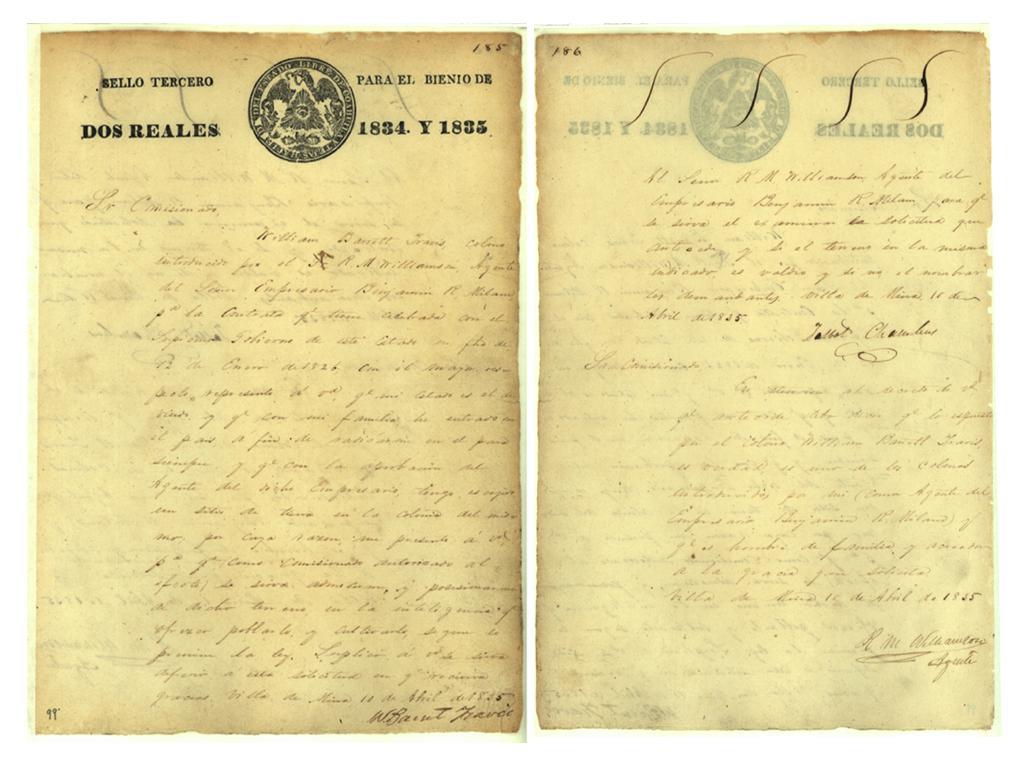 185
SELLO TERCERO
DEL ESTADO LIBRE DE COAHUILA Y TEJAS
PARA EL BIENIO DE
DOS REALES
1834. Y 1835
Sr Comisionado,
William Barrett Travis, colono
introducido por el R. M. Williamson, Agente
del Señor Empresario Benjamin R. Milam
pa la Contrata qe tiene celebrada con el
Supremo Gobierno de este Estado en fha de
12 de Enero de 1826 con el mayor res-
peto, represento á vd qe mi estado es el de
viudo, y qe con mi familia he entrado en
el pais a fin de radicarme en el para
siempre, y qe con la aprobacion del
Agente del dicho Empresario, tengo escojido
un sitio de tierra en la colonia del mis-
mo, por cuya razon, me presento á vd
pa qe como Comisionado autorizado al
efecto, se sirva admitirme, y posesionarme
de dicho terreno en la inteligencia qe
ofrezco poblarlo, y cultivarlo, segun lo
la ley. Suplico á vd se sirva
deferir a esta solicitud en qe recivire
gracias. Villa de Mina 10 de Abril de 1835
W Barret Travis
99
186
Al Señor R. M. Williamson Agente del
Empresario Benjamin R. Milam para qe
se sirva el examinar la solicitud que
antecede y si el terreno en la misma
indicado es valdio y si no el nombrar
los demandantes. Villa de Mina 10 de
Abril de 1835
Chambers
Señor Comisionado
En atencion al decreto de vd
qe antecede debo decir qe lo espuesto
por el colono William Barrett Travis
es verdad, es uno de los colonos
introducidos por mi (como Agente del
Empresario Benjamin R. Milam) y
qe es hombre de familia, y acreedor
a la gracia que solicita
Villa de Mina 10 de Abril de 1835
R. M. Williamson
Agente